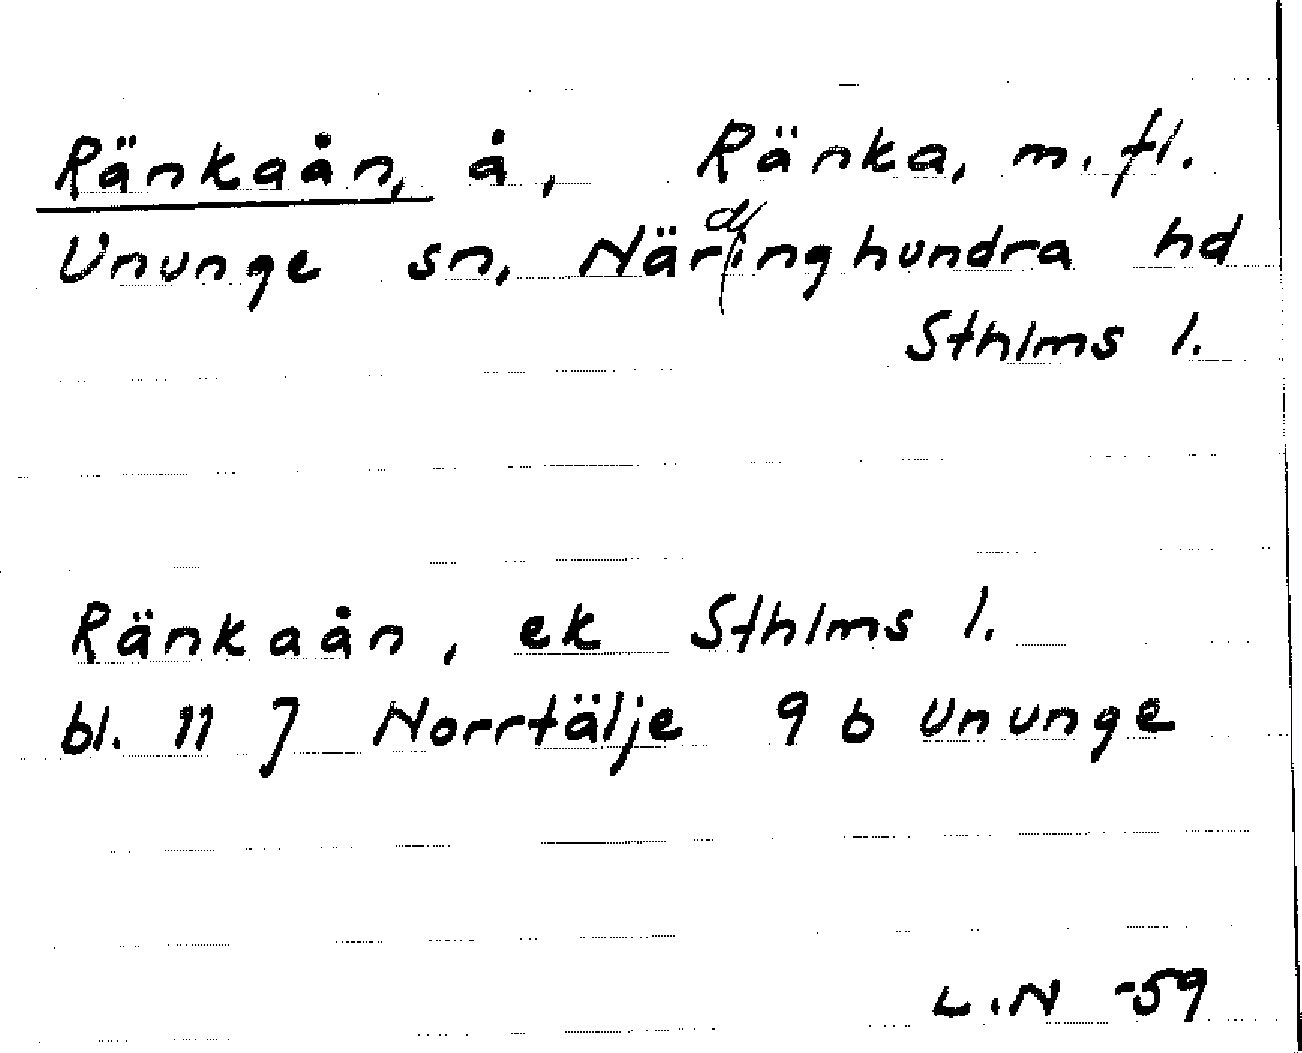 Ränkaån, å, Ränka, m. fl.
Ununge sn, Närdinghundra hd
Sthlms l.
Ränkaån, ek Sthlms l.
bl. 11 J Norrtälje 9 b Ununge
L.N -59